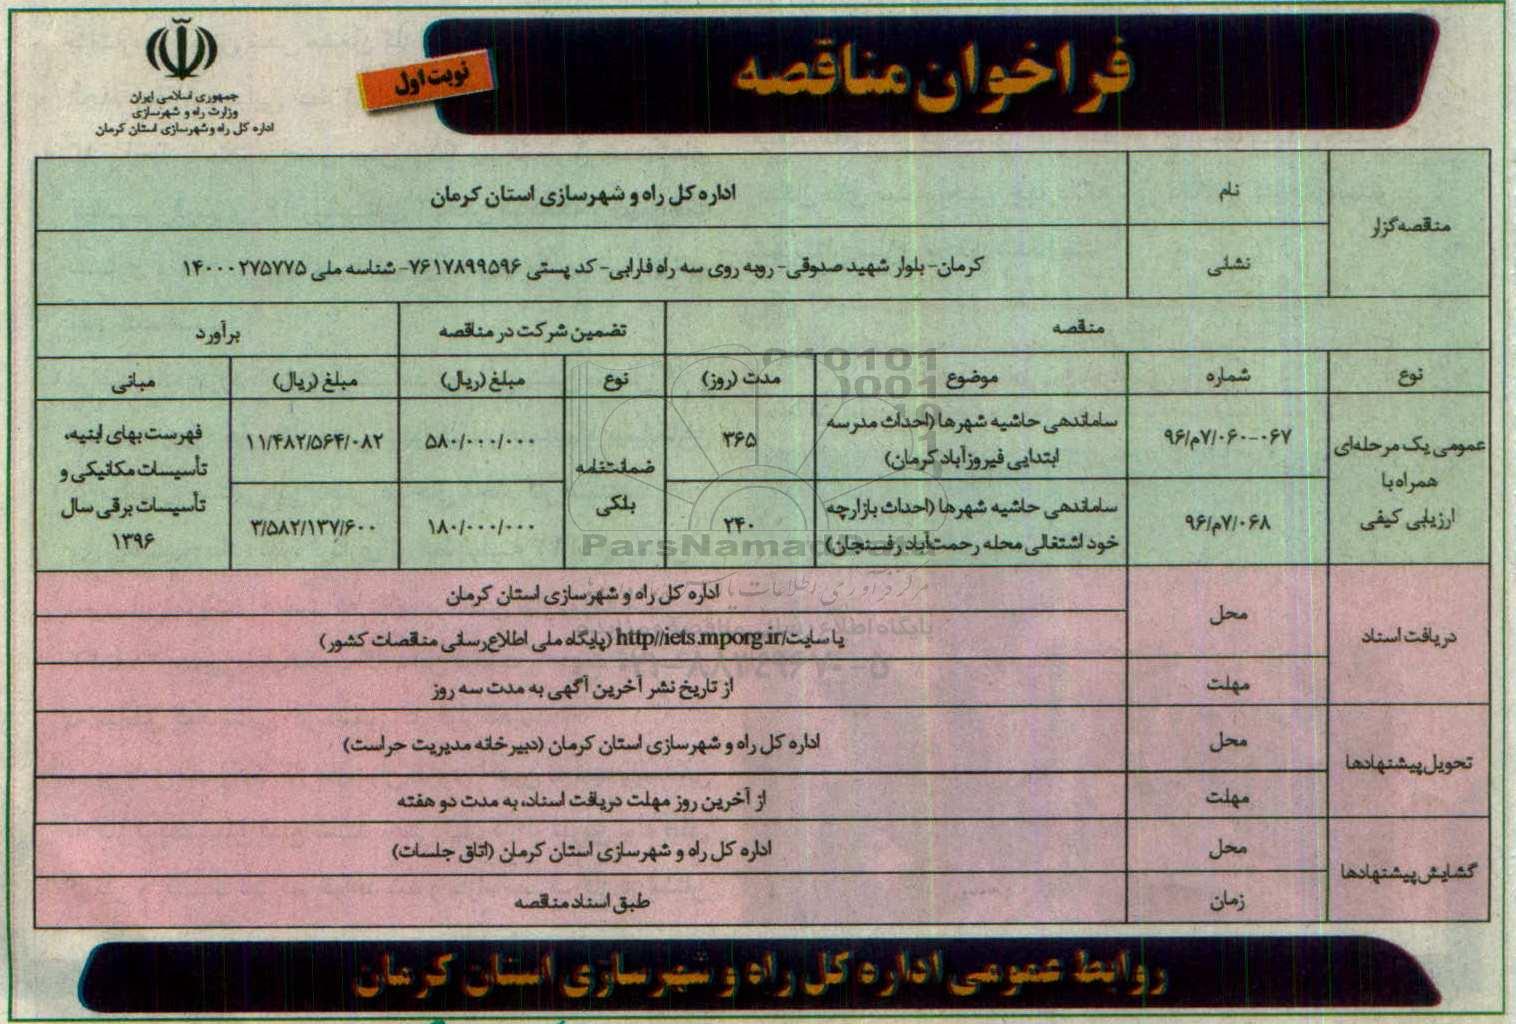 فراخوان مناقصه
نوبت اول
جمهوری اسلامی ایران
وزارت راه و شهرسازی
اداره کل راه وشهرسازی استان کرمان
مناقصه‌گزار
نام
اداره کل راه و شهرسازی استان کرمان
نشانی
کرمان- بلوار شهید صدوقی- روبه روی سه راه فارابی- کد پستی ۷۶۱۷۸۹۹۵۹۶- شناسه ملی ۱۴۰۰۰۲۷۵۷۷۵
مناقصه
تضمین شرکت در مناقصه
برآورد
نوع
شماره
موضوع
مدت (روز)
نوع
مبلغ (ریال)
مبلغ (ریال)
مبانی
عمومی یک مرحله‌ای
همراه با
ارزیابی کیفی
۹۶/م۷/۰۶۰-۰۶۷
ساماندهی حاشیه شهرها (احداث مدرسه
ابتدایی فیروزآباد کرمان)
۳۶۵
ضمانتنامه
بلکی
۵۸۰/۰۰۰/۰۰۰
۱۱/۴۸۲/۵۶۴/۰۸۲
فهرست بهای ابنیه،
تأسیسات مکانیکی و
تأسیسات برقی سال
۱۳۹۶
۹۶/م۷/۰۶۸
ساماندهی حاشیه شهرها (احداث بازارچه
خود اشتغالی محله رحمت‌آباد رفسنجان)
۲۴۰
۱۸۰/۰۰۰/۰۰۰
۳/۵۸۲/۱۳۷/۶۰۰
دریافت اسناد
محل
اداره کل راه و شهرسازی استان کرمان
یا سایت/http//iets.mporg.ir (پایگاه ملی اطلاع‌رسانی مناقصات کشور)
مهلت
از تاریخ نشر آخرین آگهی به مدت سه روز
تحویل پیشنهادها
محل
اداره کل راه و شهرسازی استان کرمان (دبیرخانه مدیریت حراست)
مهلت
از آخرین روز مهلت دریافت اسناد، به مدت دو هفته
گشایش پیشنهادها
محل
اداره کل راه و شهرسازی استان کرمان (اتاق جلسات)
زمان
طبق اسناد مناقصه
روابط عمومی اداره کل راه و شهرسازی استان کرمان